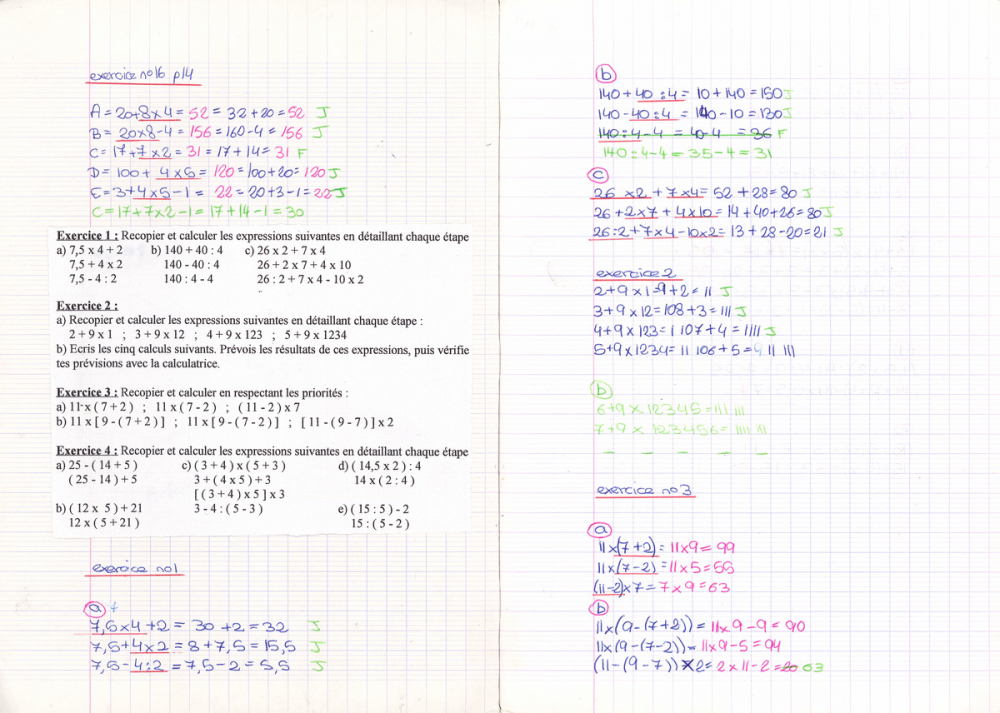 exercice no16 p14
A = 20+8x4 = 52 = 32+20=52 J
B = 20x8-4 = 156 = 160-4 = 156 J
C= 17+7x2 = 31 = 17+14= 31 F
D= 100+ 4x5 = 120= 100+20= 120 J
E= 3+4x5-1 = 22= 20+3-1= 22 J
C= 17+7x2-1= 17+14-1= 30
Exercice 1 : Recopier et calculer les expressions suivantes en détaillant chaque étape
a) 7,5 x 4 + 2 b) 140 + 40 : 4 c) 26 x 2 + 7 x 4
7,5 + 4 x 2 140 - 40 : 4 26 + 2 x 7 + 4 x 10
7,5 - 4 : 2 140 : 4 - 4 26 : 2 + 7 x 4 - 10 x 2
Exercice 2 :
a) Recopier et calculer les expressions suivantes en détaillant chaque étape :
2 + 9 x 1 ; 3 + 9 x 12 ; 4 + 9 x 123 ; 5 + 9 x 1234
b) Ecris les cinq calculs suivants. Prévois les résultats de ces expressions, puis vérifie
tes prévisions avec la calculatrice.
Exercice 3 : Recopier et calculer en respectant les priorités :
a) 11 x ( 7 + 2 ) ; 11 x ( 7 - 2 ) ; ( 11 - 2 ) x 7
b) 11 x [ 9 - ( 7 + 2 ) ] ; 11 x [ 9 - ( 7 - 2 ) ] ; [ 11 - ( 9 - 7 ) ] x 2
Exercice 4 : Recopier et calculer les expressions suivantes en détaillant chaque étape
a) 25 - ( 14 + 5 ) c) ( 3 + 4 ) x ( 5 + 3 ) d) ( 14,5 x 2 ) : 4
( 25 - 14 ) + 5 3 + ( 4 x 5 ) + 3 14 x ( 2 : 4 )
[ ( 3 + 4 ) x 5 ] x 3
b) ( 12 x 5 ) + 21 3 - 4 : ( 5 - 3 ) e) ( 15 : 5 ) - 2
12 x ( 5 + 21 ) 15 : ( 5 - 2 )
exercice no1
a
7,5x4+2 = 30 +2 = 32 J
7,5+4x2 = 8+7,5 = 15,5 J
7,5-4:2 = 7,5-2 = 5,5 J
b
140+40:4= 10+140=150 J
140-40:4= 140-10=130 J
140:4-4 = 40-4 = 36 F
140:4-4= 35-4= 31
c
26 x2 + 7x4= 52+28= 80 J
26+2x7+4x10= 14+40+26= 80 J
26:2+7x4-10x2= 13+28-20= 21 J
exercice 2
2+9x1=9+2= 11 J
3+9x12=108+3= 111 J
4+9x123=1107+4= 1111 J
5+9x1234= 11 106+5= 11 111
b
6+9x12345=111 111
7+9x123456= 1111 111
exercice no3
a
11x(7+2)= 11x9= 99
11x(7-2)=11x5=55
(11-2)x7=7x9=63
b
11x(9-(7+2))= 11x9-9= 90
11x(9-(7-2))= 11x9-5= 94
(11-(9-7))x2= 2x11-2=20 63